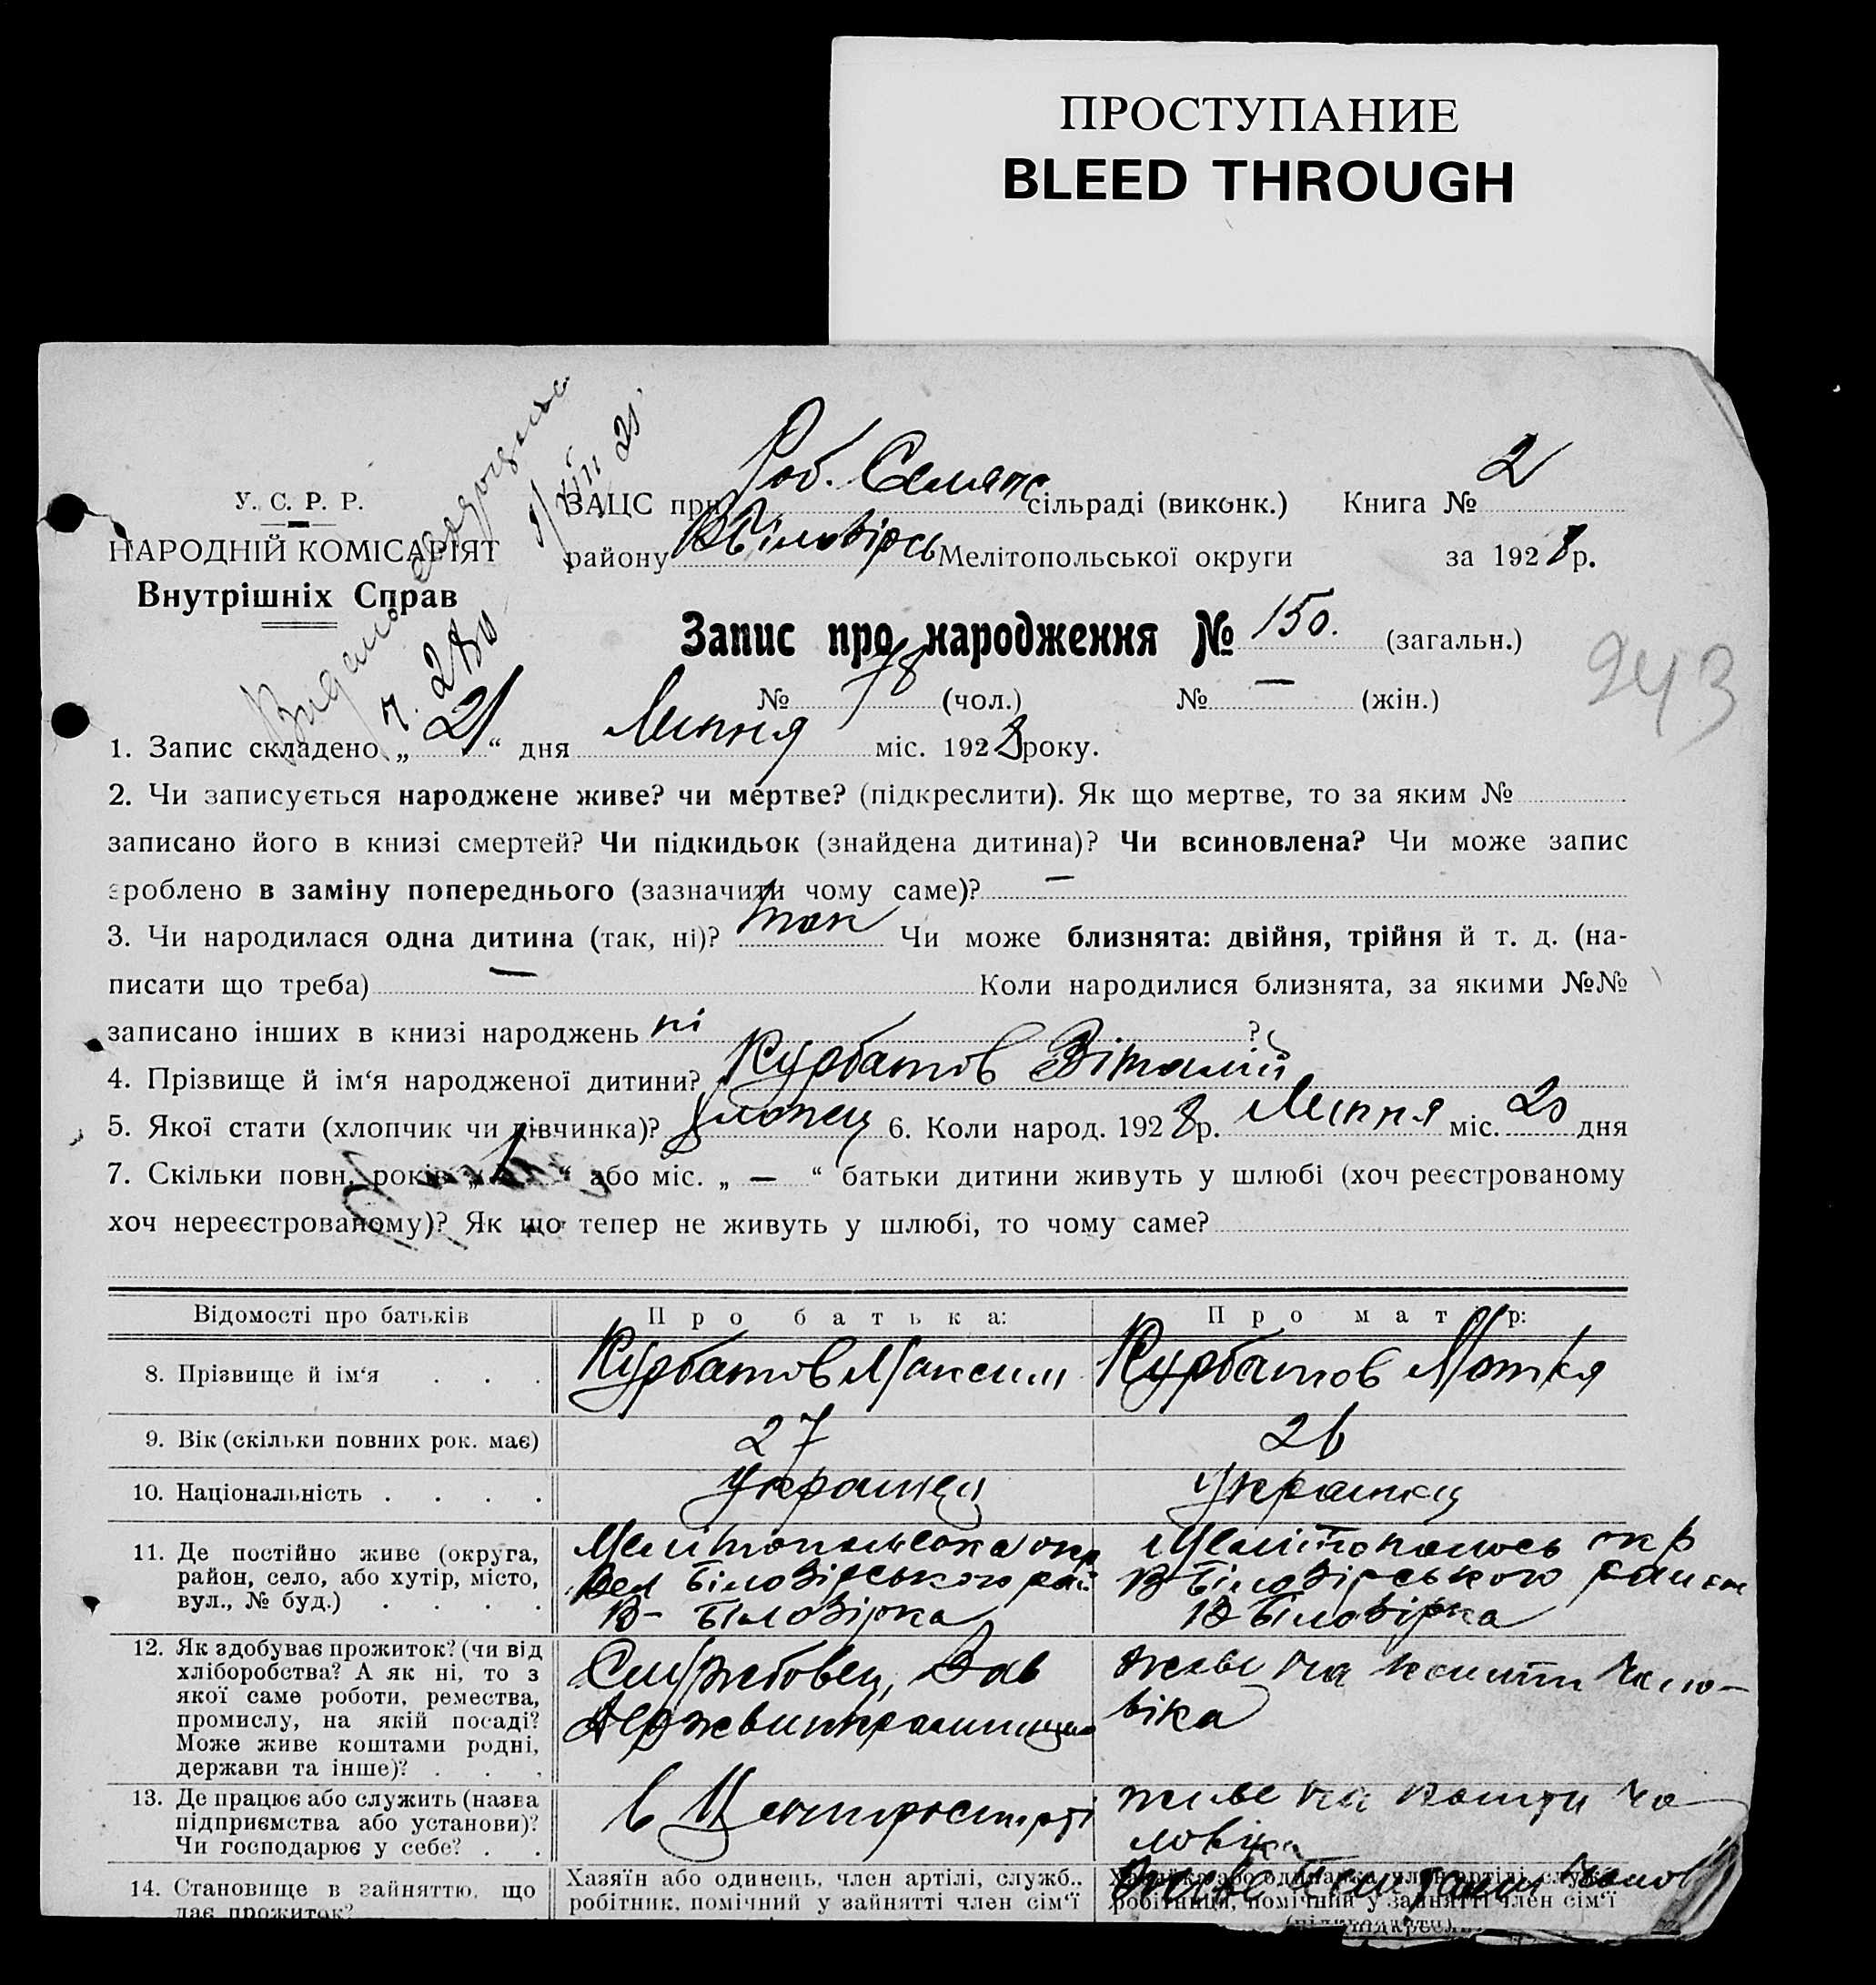 ПРОСТУПАНИЕ
BLEED THROUGH
У. С. Р. Р.
НАРОДНІЙ КОМІСАРІЯТ
Внутрішніх Справ
Видано
ч. 280
ЗАЦС при Роб. Селянс сільраді (виконк.) Книга № 2
району ВБіловірсь Мелітопольської округи за 1928 р.
Запис про народження № 150. (загальн.)
243
№ 78 (чол.) № — (жін.)
1. Запис складено „ 21 “ дня Липня міс. 1928 року.
2. Чи записується народжене живе? чи мертве? (підкреслити). Як що мертве, то за яким №
записано його в книзі смертей? Чи підкидьок (знайдена дитина)? Чи всиновлена? Чи може запис
зроблено в заміну попереднього (зазначити чому саме)? —
3. Чи народилася одна дитина (так, ні)? так Чи може близнята: двійня, трійня й т. д. (на-
писати що треба) — Коли народилися близнята, за якими №№
записано інших в книзі народжень ні ?
4. Прізвище й ім‘я народженої дитини? Курбатов Віталій
5. Якої стати (хлопчик чи дівчинка)? Хлопец 6. Коли народ. 1928 р. Липня міс. 20 дня
7. Скільки повн. років „ 1 “ або міс. „ — “ батьки дитини живуть у шлюбі (хоч реєстрованому
хоч нереєстрованому)? Як що тепер не живуть у шлюбі, то чому саме?
Відомості про батьків Про батька: Про матір:
8. Прізвище й ім‘я . . . Курбатов Максим Курбатов Мотря
9. Вік (скільки повних рок. має) 27 26
10. Національність . . . . Украінец Украінка
11. Де постійно живе (округа,
район, село, або хутір, місто,
вул., № буд.) . . . .
Мелітопольська окр
Вел Біловірського рай
В- Біловірка
Мелітопольсь окр
В-Біловірського району
В Біловірка
12. Як здобуває прожиток? (чи від
хліборобства? А як ні, то з
якої саме роботи, ремества,
промислу, на якій посаді?
Може живе коштами родні,
держави та інше)? . . .
Службовец, Зав
живе на кошти чоло-
віка
13. Де працює або служить (назва
підприємства або установи)?
Чи господарює у себе? . .
в Центроспирті
живе на кошти чо
ловіка
14. Становище в зайняттю, що
дає прожиток?
Хазяїн або одинець, член артілі, служб.,
робітник, помічний у зайнятті член сім‘ї
Хазяйка або одиначка, член артілі, служб.
робітниця, помічний у зайнятті член сім‘ї